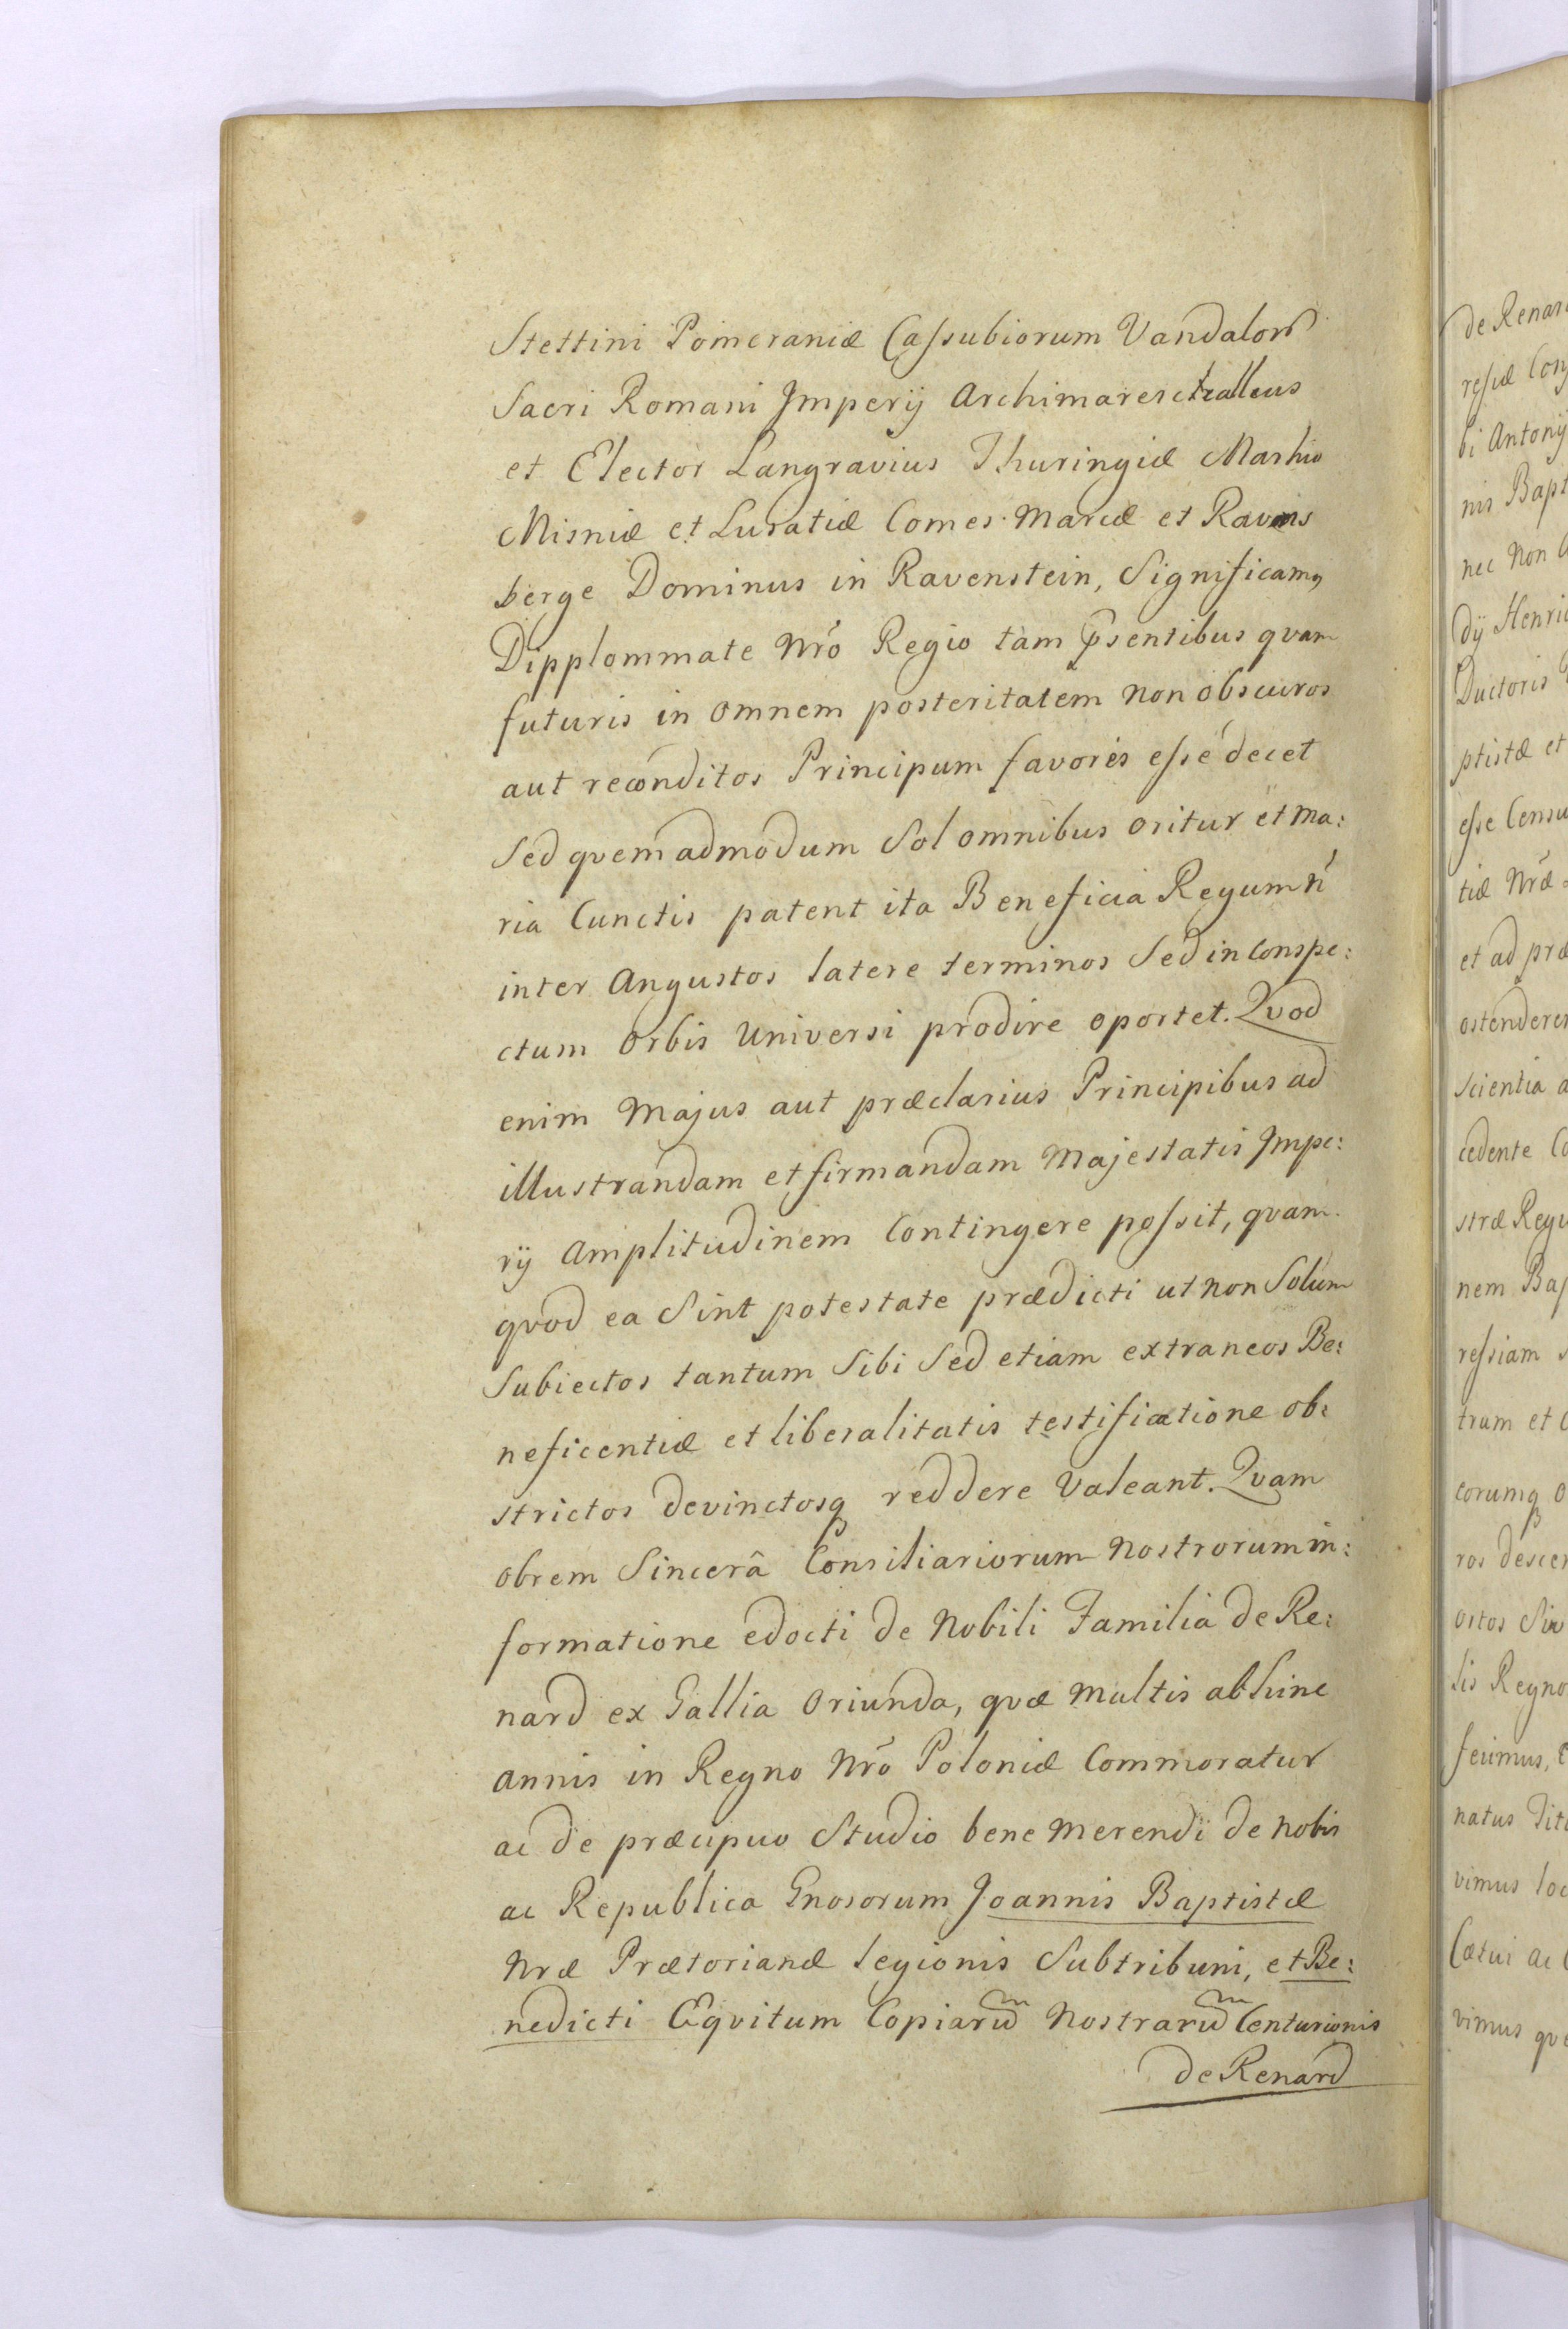 Stettini Pomeraniæ Cassubiorum Vandalorū
Sacri Romani Imperij Archimaresctcalleus
et Elector Langravius Thuringiæ Marhio
Misniæ et Lusatiæ Comes Marcæ et Ravens
berge Dominus in Ravenstein, Significamꝰ
Dipplommate Nr̃o Regio tam p̃sentibus qvam
futuris in omnem posteritatem non obscuros
aut reconditos Principum favores esse decet
Sed qvemadmodum Sol omnibus oritur et ma:
ria Cunctis patent ita Beneficia Regum ñ
inter Angustos latere terminos Sed in Conspe:
ctum Orbis Universi prodire oportet. Qvod
enim Majus aut præclarius Principibus ad
illustrandam et firmandam Majestatis Impe:
rij Amplitudinem Contingere possit, qvam
qvod ea Sint potestate prædicti ut non Solum
Subiectos tantum Sibi Sed etiam extraneos Be:
neficentiæ et liberalitatis testificatione ob:
strictos devinctosq reddere Valeant. Qvam
obrem Sincerâ Consiliariorum Nostrorum in:
formatione edocti de Nobili Familia de Re:
nard ex Gallia Oriunda, qvæ Multis abhinc
annis in Regno Nr̃o Poloniæ Commoratur
ac de præcipuo Studio bene Merendi de Nobis
ac Republica Gnosorum Joannis Baptistæ
Nræ Prætorianæ Legionis Subtribuni, et Be:
nedicti Eqvitum Copiarū Nostrarū Centurionis
de Renard
de Renar
bi Antonij
nis Bapt
nec Non
dij Henri
Ductoris
ptistæ et
esse Censu
tiæ Nr̃æ
et ad præ
ostenderen
Scientia a
cedente Co
stræ Regi
nem Bap
ressiam
trum et C
corumq o
ros descen
lis Regno
natus Tit
vimus loc
Cætui ac
vimus qve